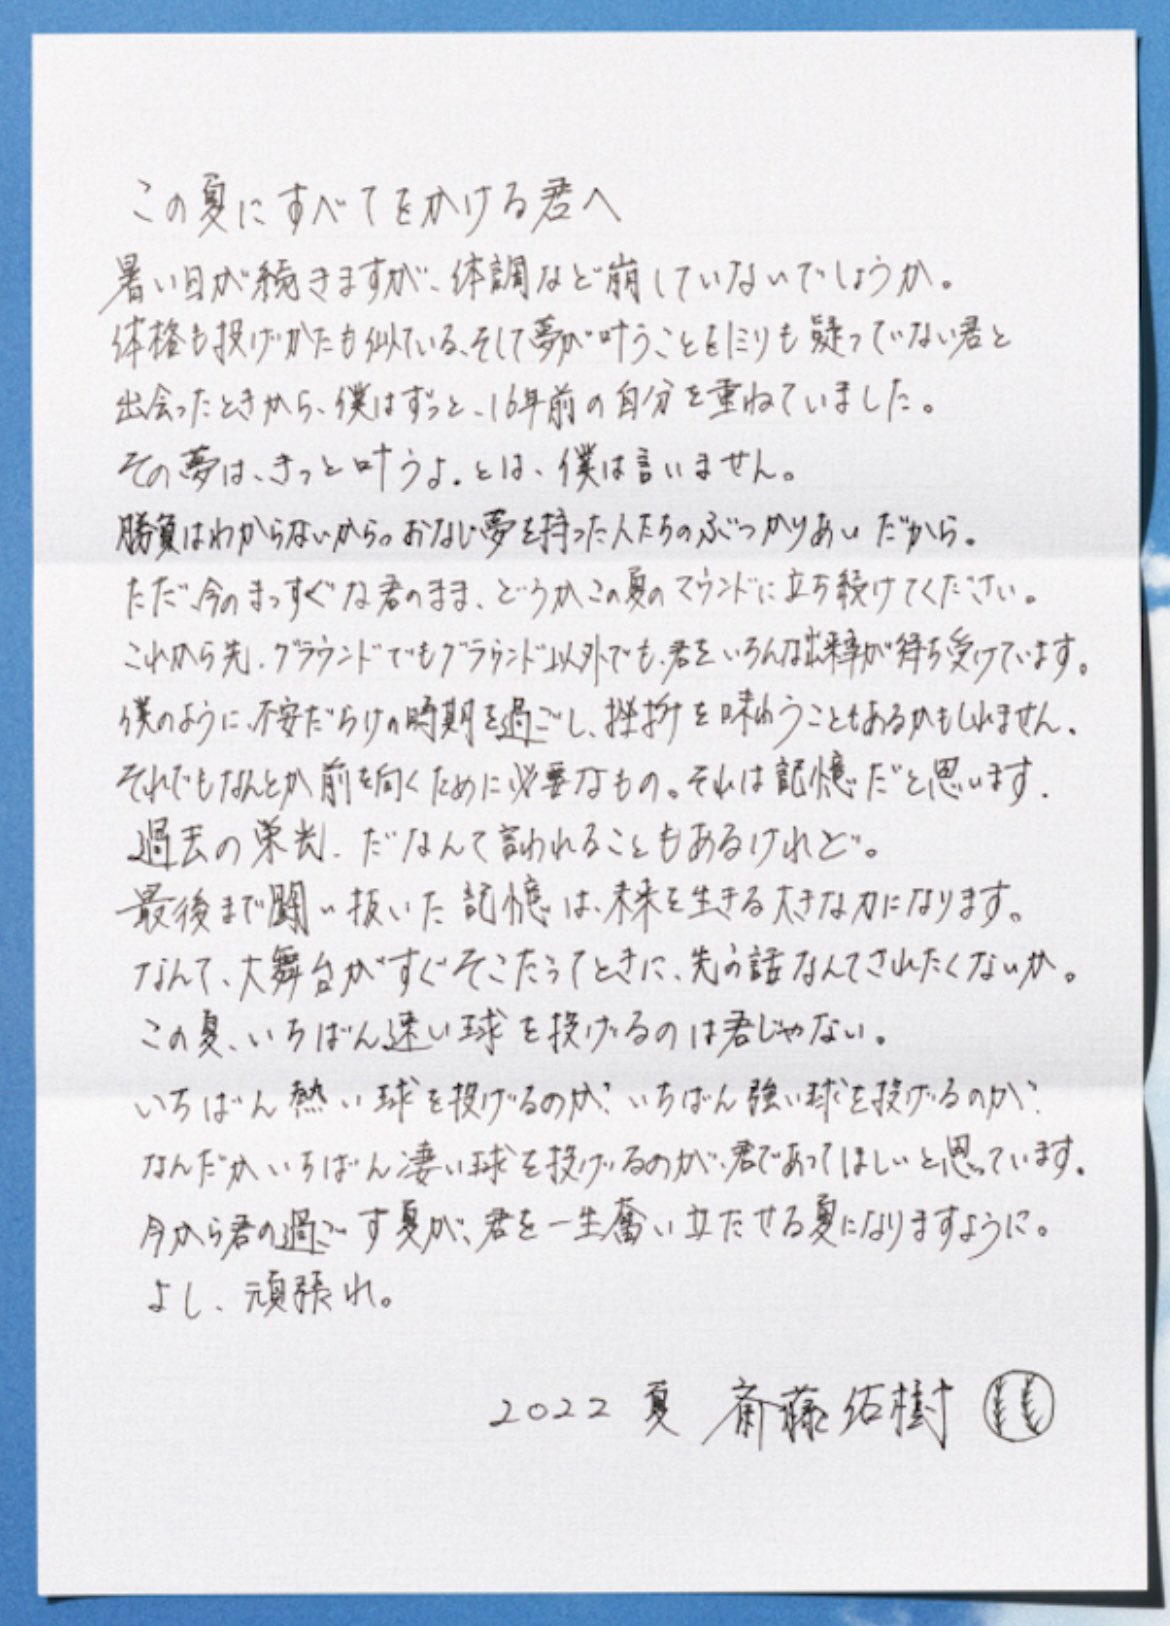 この夏にすべてをかける君へ
暑い日が続きますが、体調など崩していないでしょうか。
体格も投げかたも似ている、そして夢が叶うことを1ミリも疑っていない君と
出会ったときから、僕はずっと、16年前の自分を重ねていました。
その夢は、きっと叶うよ。とは、僕は言いません。
勝負はわからないから。おなじ夢を持った人たちのぶつかりあいだから。
ただ、今のまっすぐな君のまま、どうかこの夏のマウンドに立ち続けてください。
これから先、グラウンドでもグラウンド以外でも、君をいろんな出来事が待ち受けています。
僕のように、不安だらけの時期を過ごし、挫折を味わうこともあるかもしれません。
それでもなんとか前を向くために必要なもの。それは記憶だと思います。
過去の栄光、だなんて言われることもあるけれど。
最後まで闘い抜いた記憶は、未来を生きる大きな力になります。
なんて、大舞台がすぐそこだってときに、先の話なんてされたくないか。
この夏、いちばん速い球を投げるのは君じゃない。
いちばん熱い球を投げるのが、いちばん強い球を投げるのが、
なんだかいちばん凄い球を投げるのが、君であってほしいと思っています。
今から君の過ごす夏が、君を一生奮い立たせる夏になりますように。
よし、頑張れ。
2022 夏 斎藤佑樹